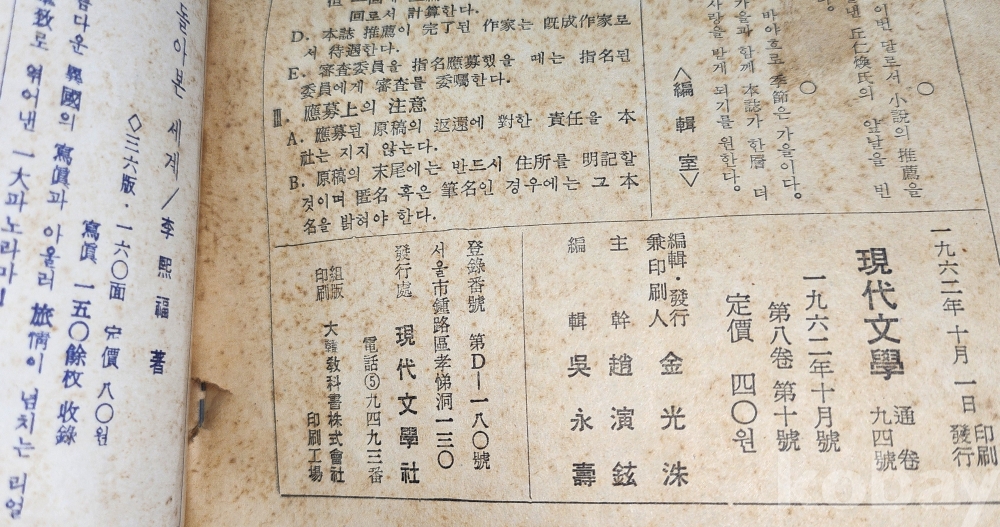 이번 달로서 小說의 推薦을
낸 丘仁煥氏의 앞날을 빈
다。
○
바야흐로 季節은 가을이다。
가을과 함께 本誌가 한層 더
사랑을 받게 되기를 원한다。
<編輯室>
回로서 計算한다.
D. 本誌 推薦이 完了된 作家는 旣成作家로
서 待遇한다.
E. 審査委員을 指名應募했을 때는 指名된
委員에게 審査를 委囑한다.
Ⅲ. 應募上의 注意
A. 應募된 原稿의 返還에 對한 責任을 本
社는 지지 않는다.
B. 原稿의 末尾에는 반드시 住所를 明記할
것이며 匿名 혹은 筆名인 경우에는 그 本
名을 밝혀야 한다.
一九六二年 十月 一日 印刷 發行
現代文學 通卷 九四號
一九六二年十月號
第八卷 第十號
定價 四〇원
編輯・發行 兼印刷人 金光洙
主幹 趙演鉉
編輯 吳永壽
登錄番號 第D一一八〇號
서울市鍾路區孝悌洞一三〇
發行處 現代文學社
電話⑤九四九三番
組版 印刷 大韓敎科書株式會社 印刷工場
돌아본 세계/李熙福 著
◇三六版・一六〇面 定價 八〇원
寫眞 一五〇餘枚 收錄
다운 異國의 寫眞과 아울러 旅情이 넘치는 리얼
致로 엮어낸 一大파노라마!
kobay